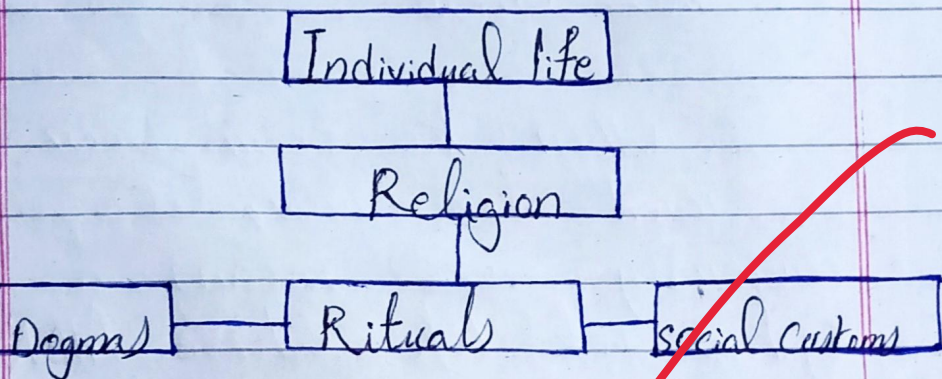 Individual life
Religion
Dogmas Rituals social customs